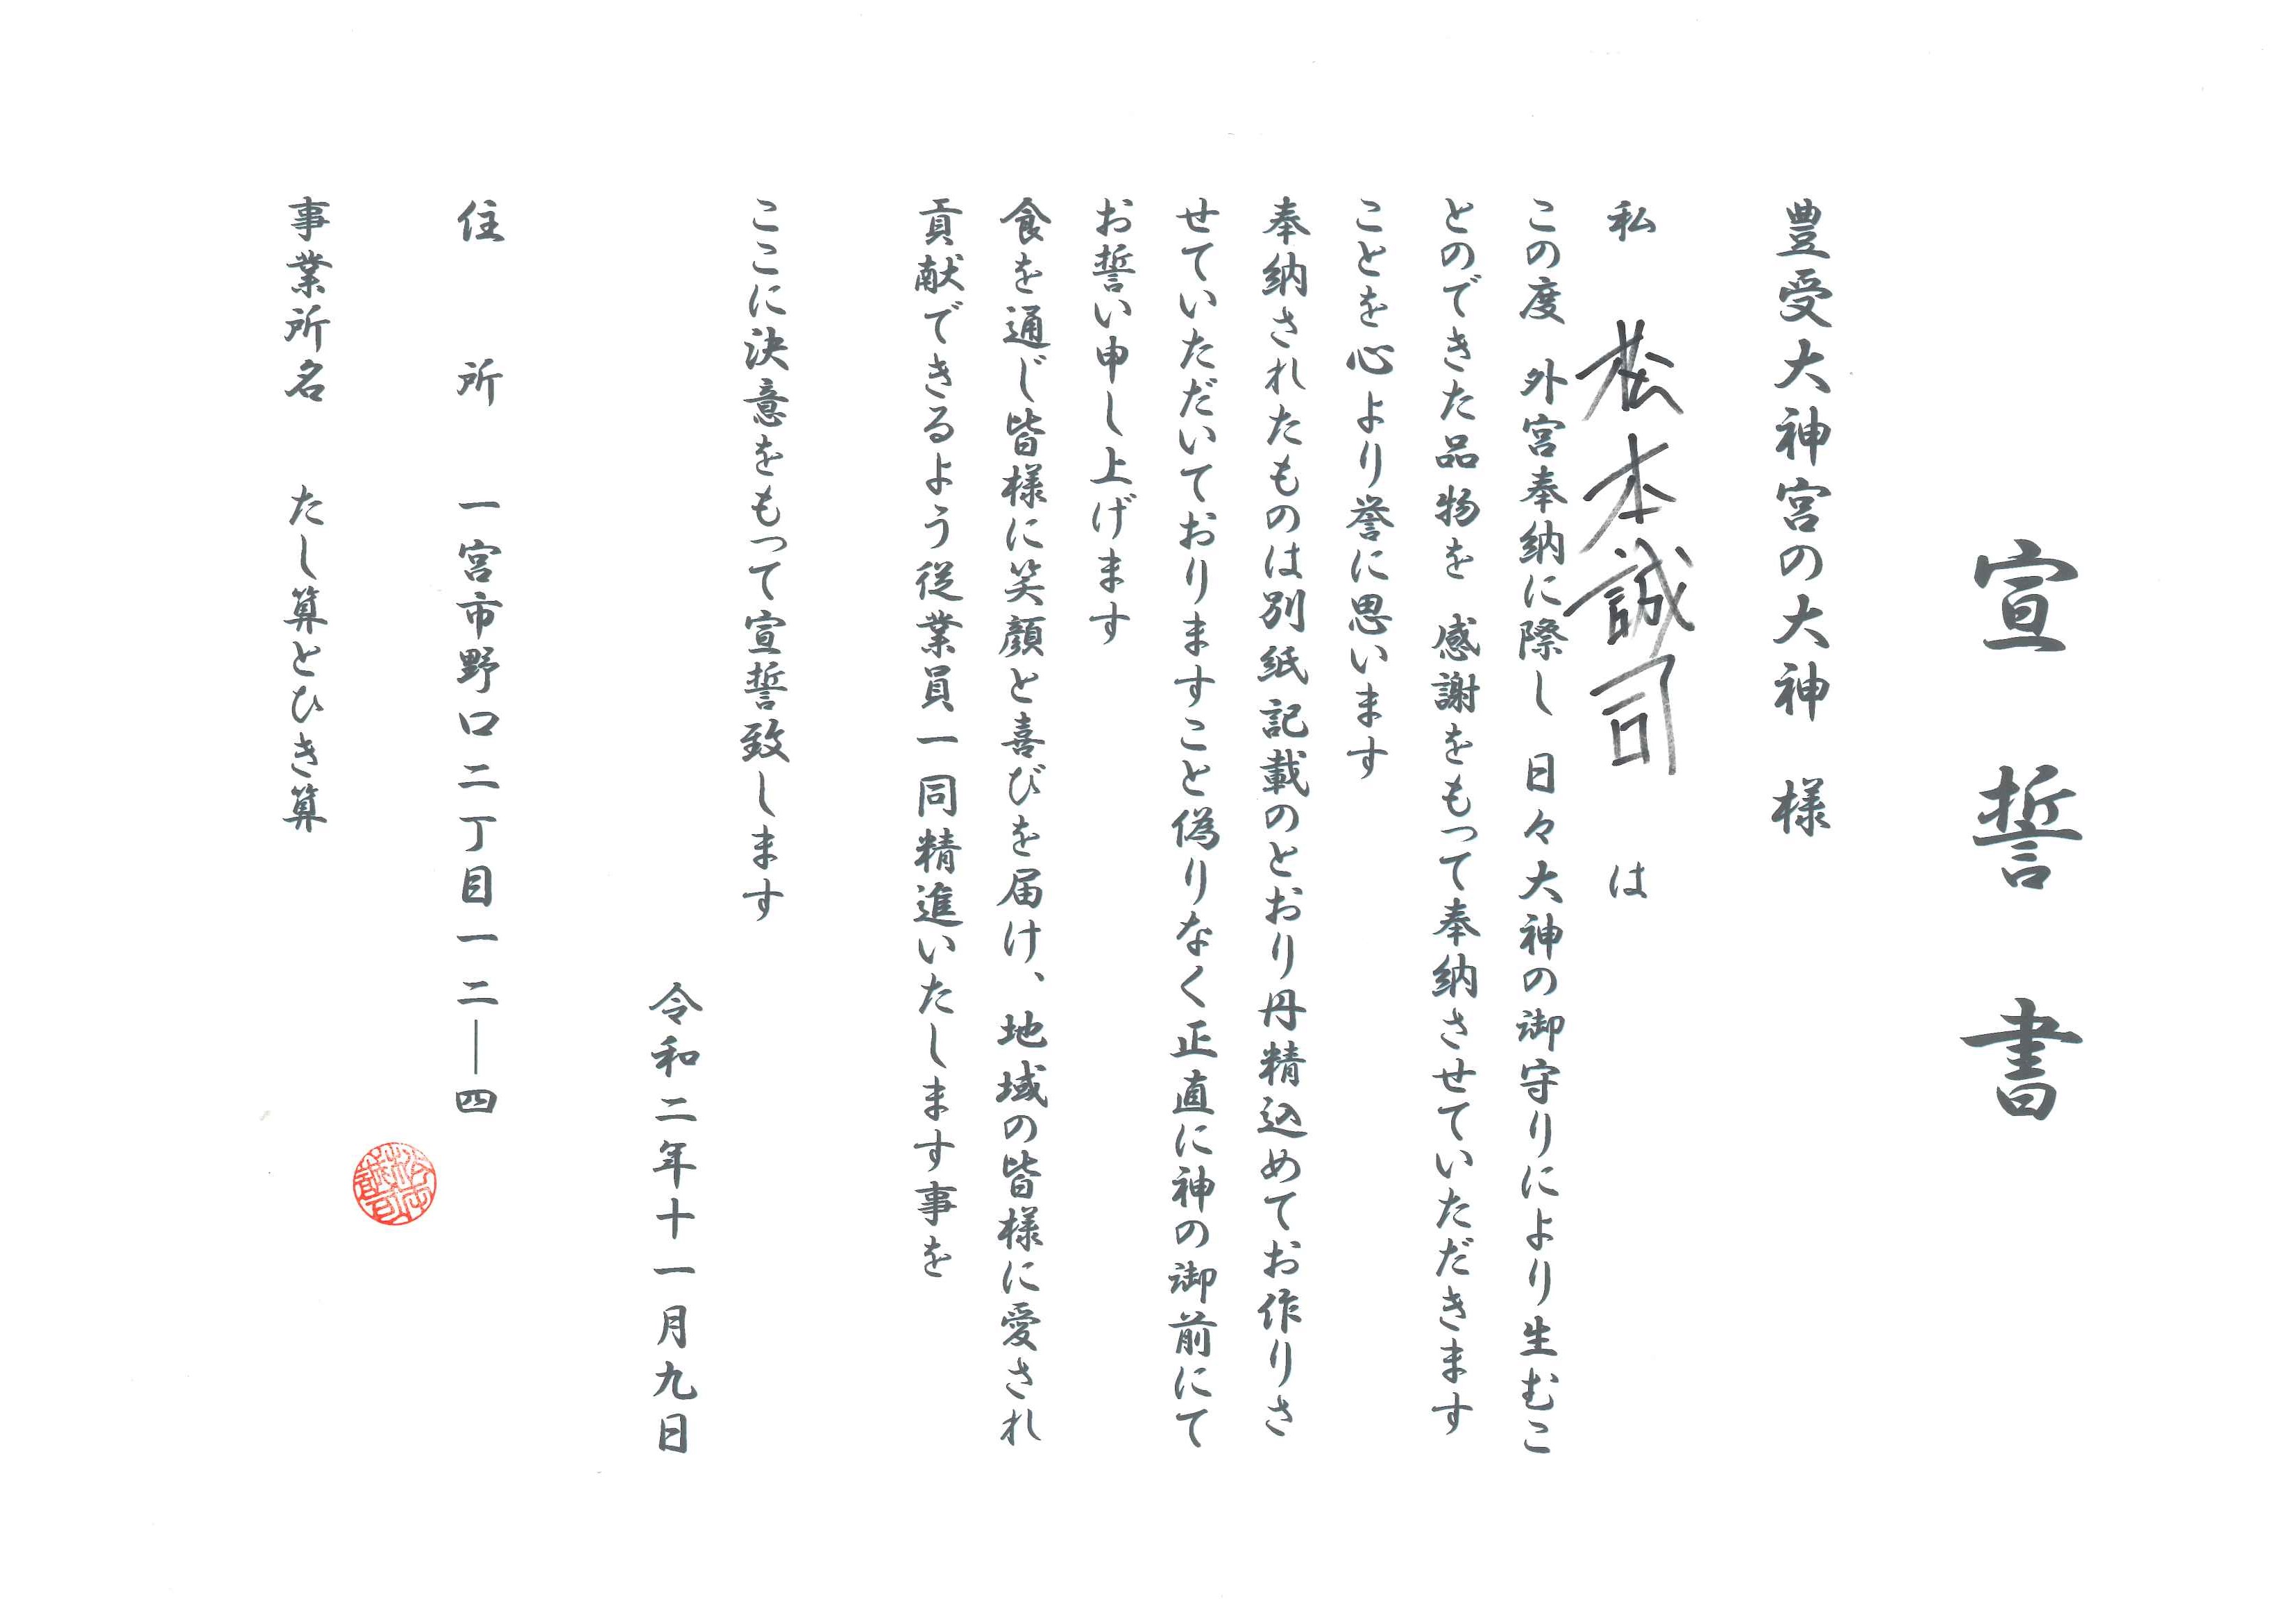 宣誓書
豊受大神宮の大神 様
私 松本誠司 は
この度 外宮奉納に際し 日々大神の御守りにより生むこ
とのできた品物を 感謝をもって奉納させていただきます
ことを心より誉に思います
奉納されたものは別紙記載のとおり丹精込めてお作りさ
せていただいておりますこと偽りなく正直に神の御前にて
お誓い申し上げます
食を通じ皆様に笑顔と喜びを届け、地域の皆様に愛され
貢献できるよう従業員一同精進いたします事を
ここに決意をもって宣誓致します
令和二年十一月九日
住所 一宮市野口二丁目一二―四
事業所名 たし算とひき算
松本誠司